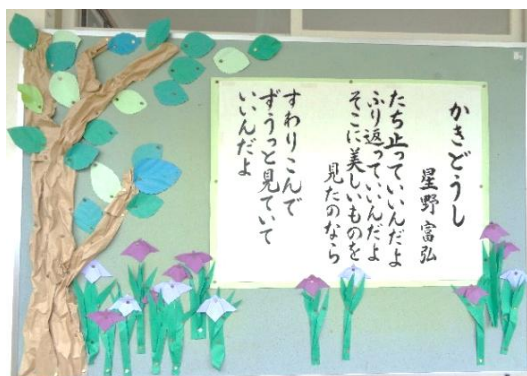 かきどうし
星野富弘
たち止っていいんだよ
ふり返っていいんだよ
そこに美しいものを
見たのなら
すわりこんで
ずうっと見ていて
いいんだよ